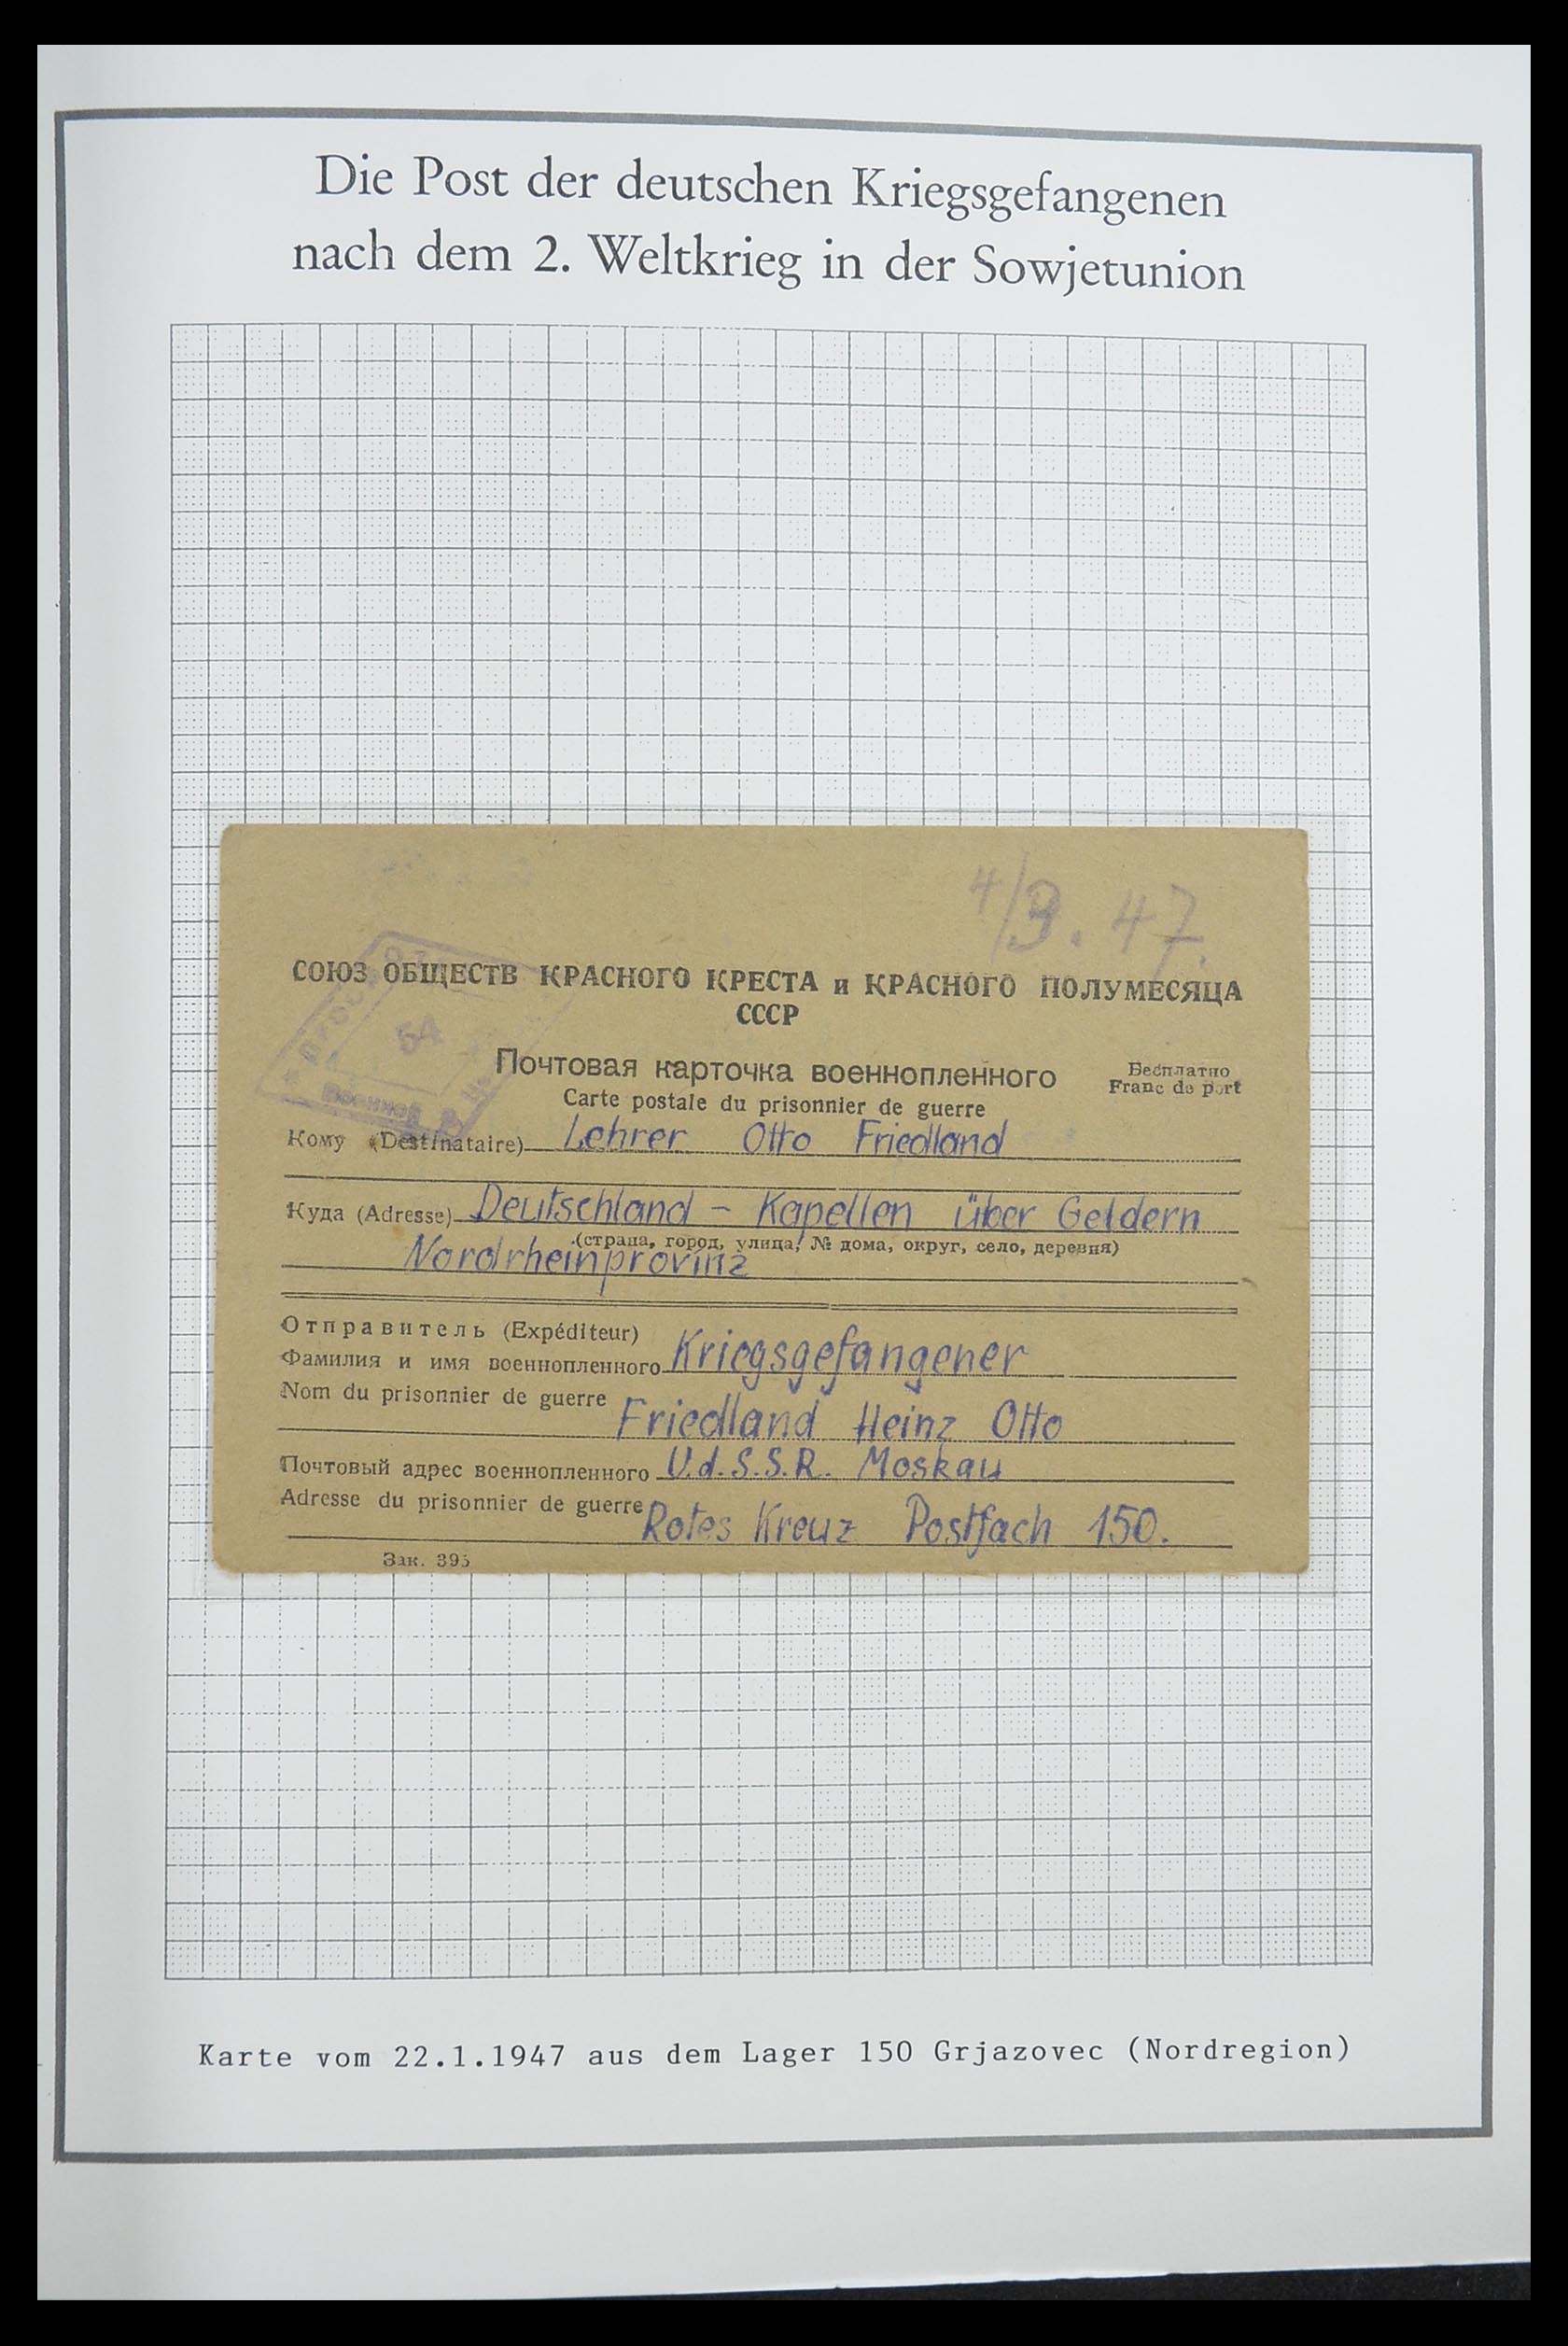 Die Post der deutschen Kriegsgefangenen
nach dem 2. Weltkrieg in der Sowjetunion
4/3. 47.
СОЮЗ ОБЩЕСТВ КРАСНОГО КРЕСТА и КРАСНОГО ПОЛУМЕСЯЦА
СССР
54
Почтовая карточка военнопленного
Бесплатно
Carte postale du prisonnier de guerre
Franc de port
Кому (Destinataire) Lehrer Otto Friedland
Куда (Adresse) Deutschland - Kapellen über Geldern
(страна, город, улица, № дома, округ, село, деревня)
Nordrheinprovinz
Отправитель (Expéditeur)
Фамилия и имя военнопленного Kriegsgefangener
Nom du prisonnier de guerre
Friedland Heinz Otto
Почтовый адрес военнопленного U.d.S.S.R. Moskau
Adresse du prisonnier de guerre
Rotes Kreuz Postfach 150.
Зак. 395
Karte vom 22.1.1947 aus dem Lager 150 Grjazovec (Nordregion)